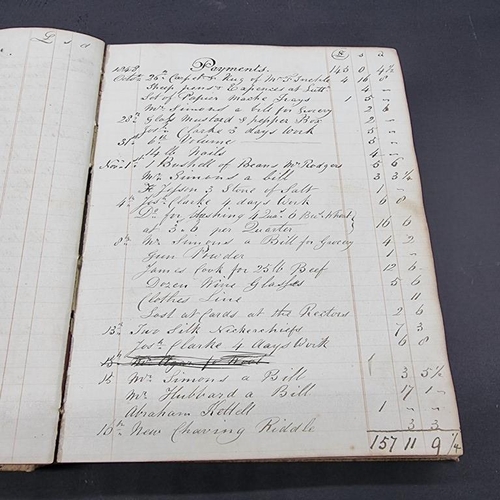 L s d
Payments. £ s d
1848 145 0 4½
Octobr 26th Carpet & Rug of Mr T 4 16 0
Sheep pens & Expences at Sutt 4 -
Set of Papier Mache Trays 1 5 -
Mr Simons a bill for Grocery 2 6
28th Glass Mustard & pepper Box 2 -
Josh Clarke 3 days Work 5 -
31st 6th Volume 5 -
14 lb Nails 4 -
Novr 1st 1 Bushell of Beans Mr Rodgers 5 6
Mr Simons a bill 3 3½
3 Stone of Salt 1 -
4th Josh Clarke 4 days Work 6 8
Do for dushing 4 Qrs 6 Bus Wheat
at 3..6 per Quarter 16 6
8th Mr Simons a Bill for Grocery 4 2
Gun Powder 1 -
James Cook for 25 lb Beef 12 6
Dozen Wine Glasses 5 6
Clothes Line 11
Lost at Cards at the Rectors 2 6
13th Two Silk Neckerchiefs 7 3
Josh Clarke 4 days Work 6 8
15th Mr
15 Mr Simons a Bill 3 5½
Mr Hubbard a Bill 17 1
Abraham Kettell 1 - -
15th New Chaving Riddle 3 3
157 11 9¼